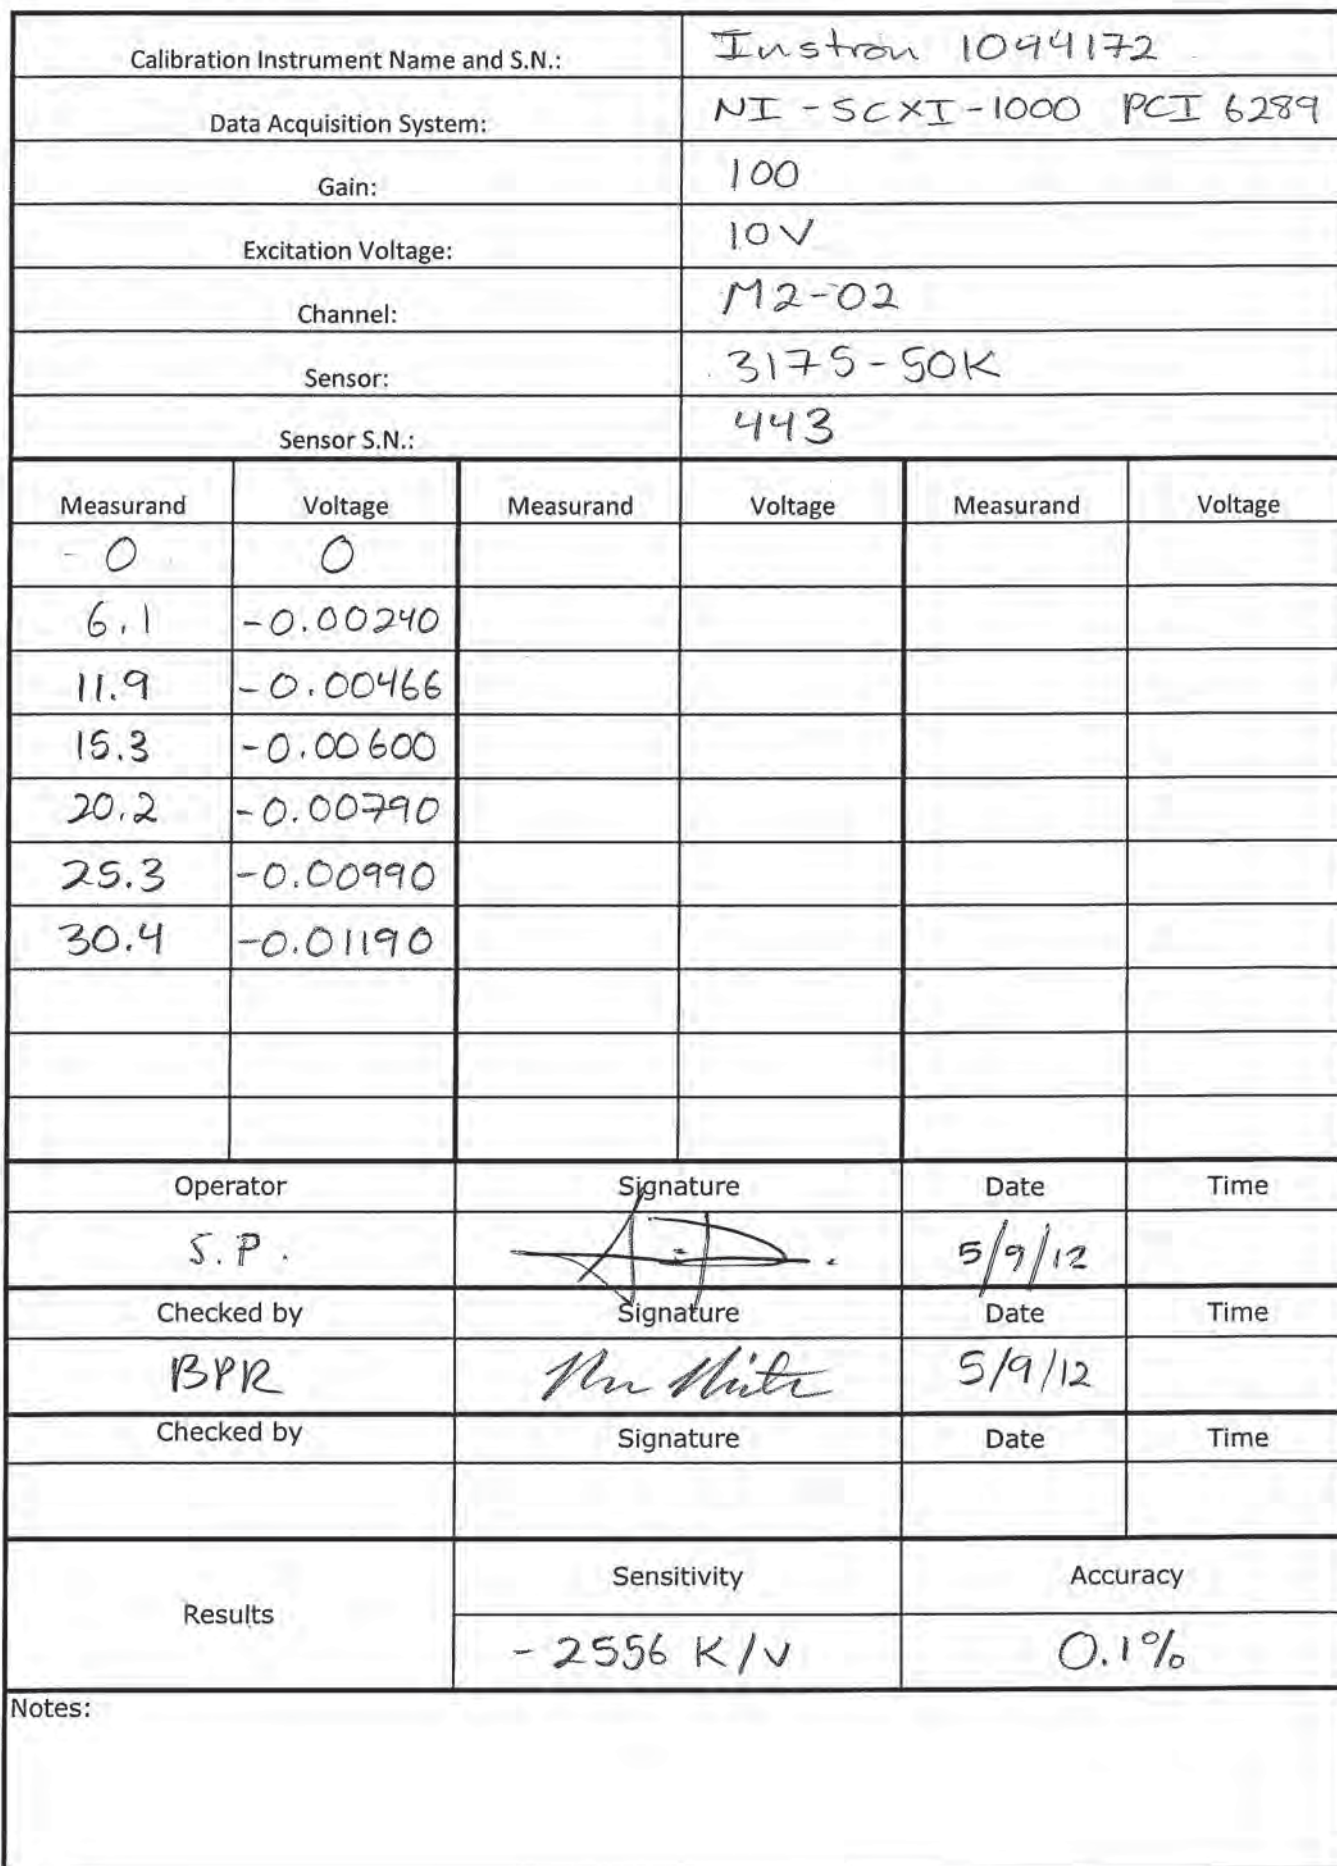 Calibration Instrument Name and S.N.: Instron 1094172
Data Acquisition System: NI-SCXI-1000 PCI 6289
Gain: 100
Excitation Voltage: 10V
Channel: M2-02
Sensor: 3175-50K
Sensor S.N.: 443
Measurand Voltage Measurand Voltage Measurand Voltage
0 0
6.1 -0.00240
11.9 -0.00466
15.3 -0.00600
20.2 -0.00790
25.3 -0.00990
30.4 -0.01190
Operator Signature Date Time
S.P. 5/9/12
Checked by Signature Date Time
BPR 5/9/12
Checked by Signature Date Time
Sensitivity Accuracy
Results
-2556 K/V 0.1%
Notes: